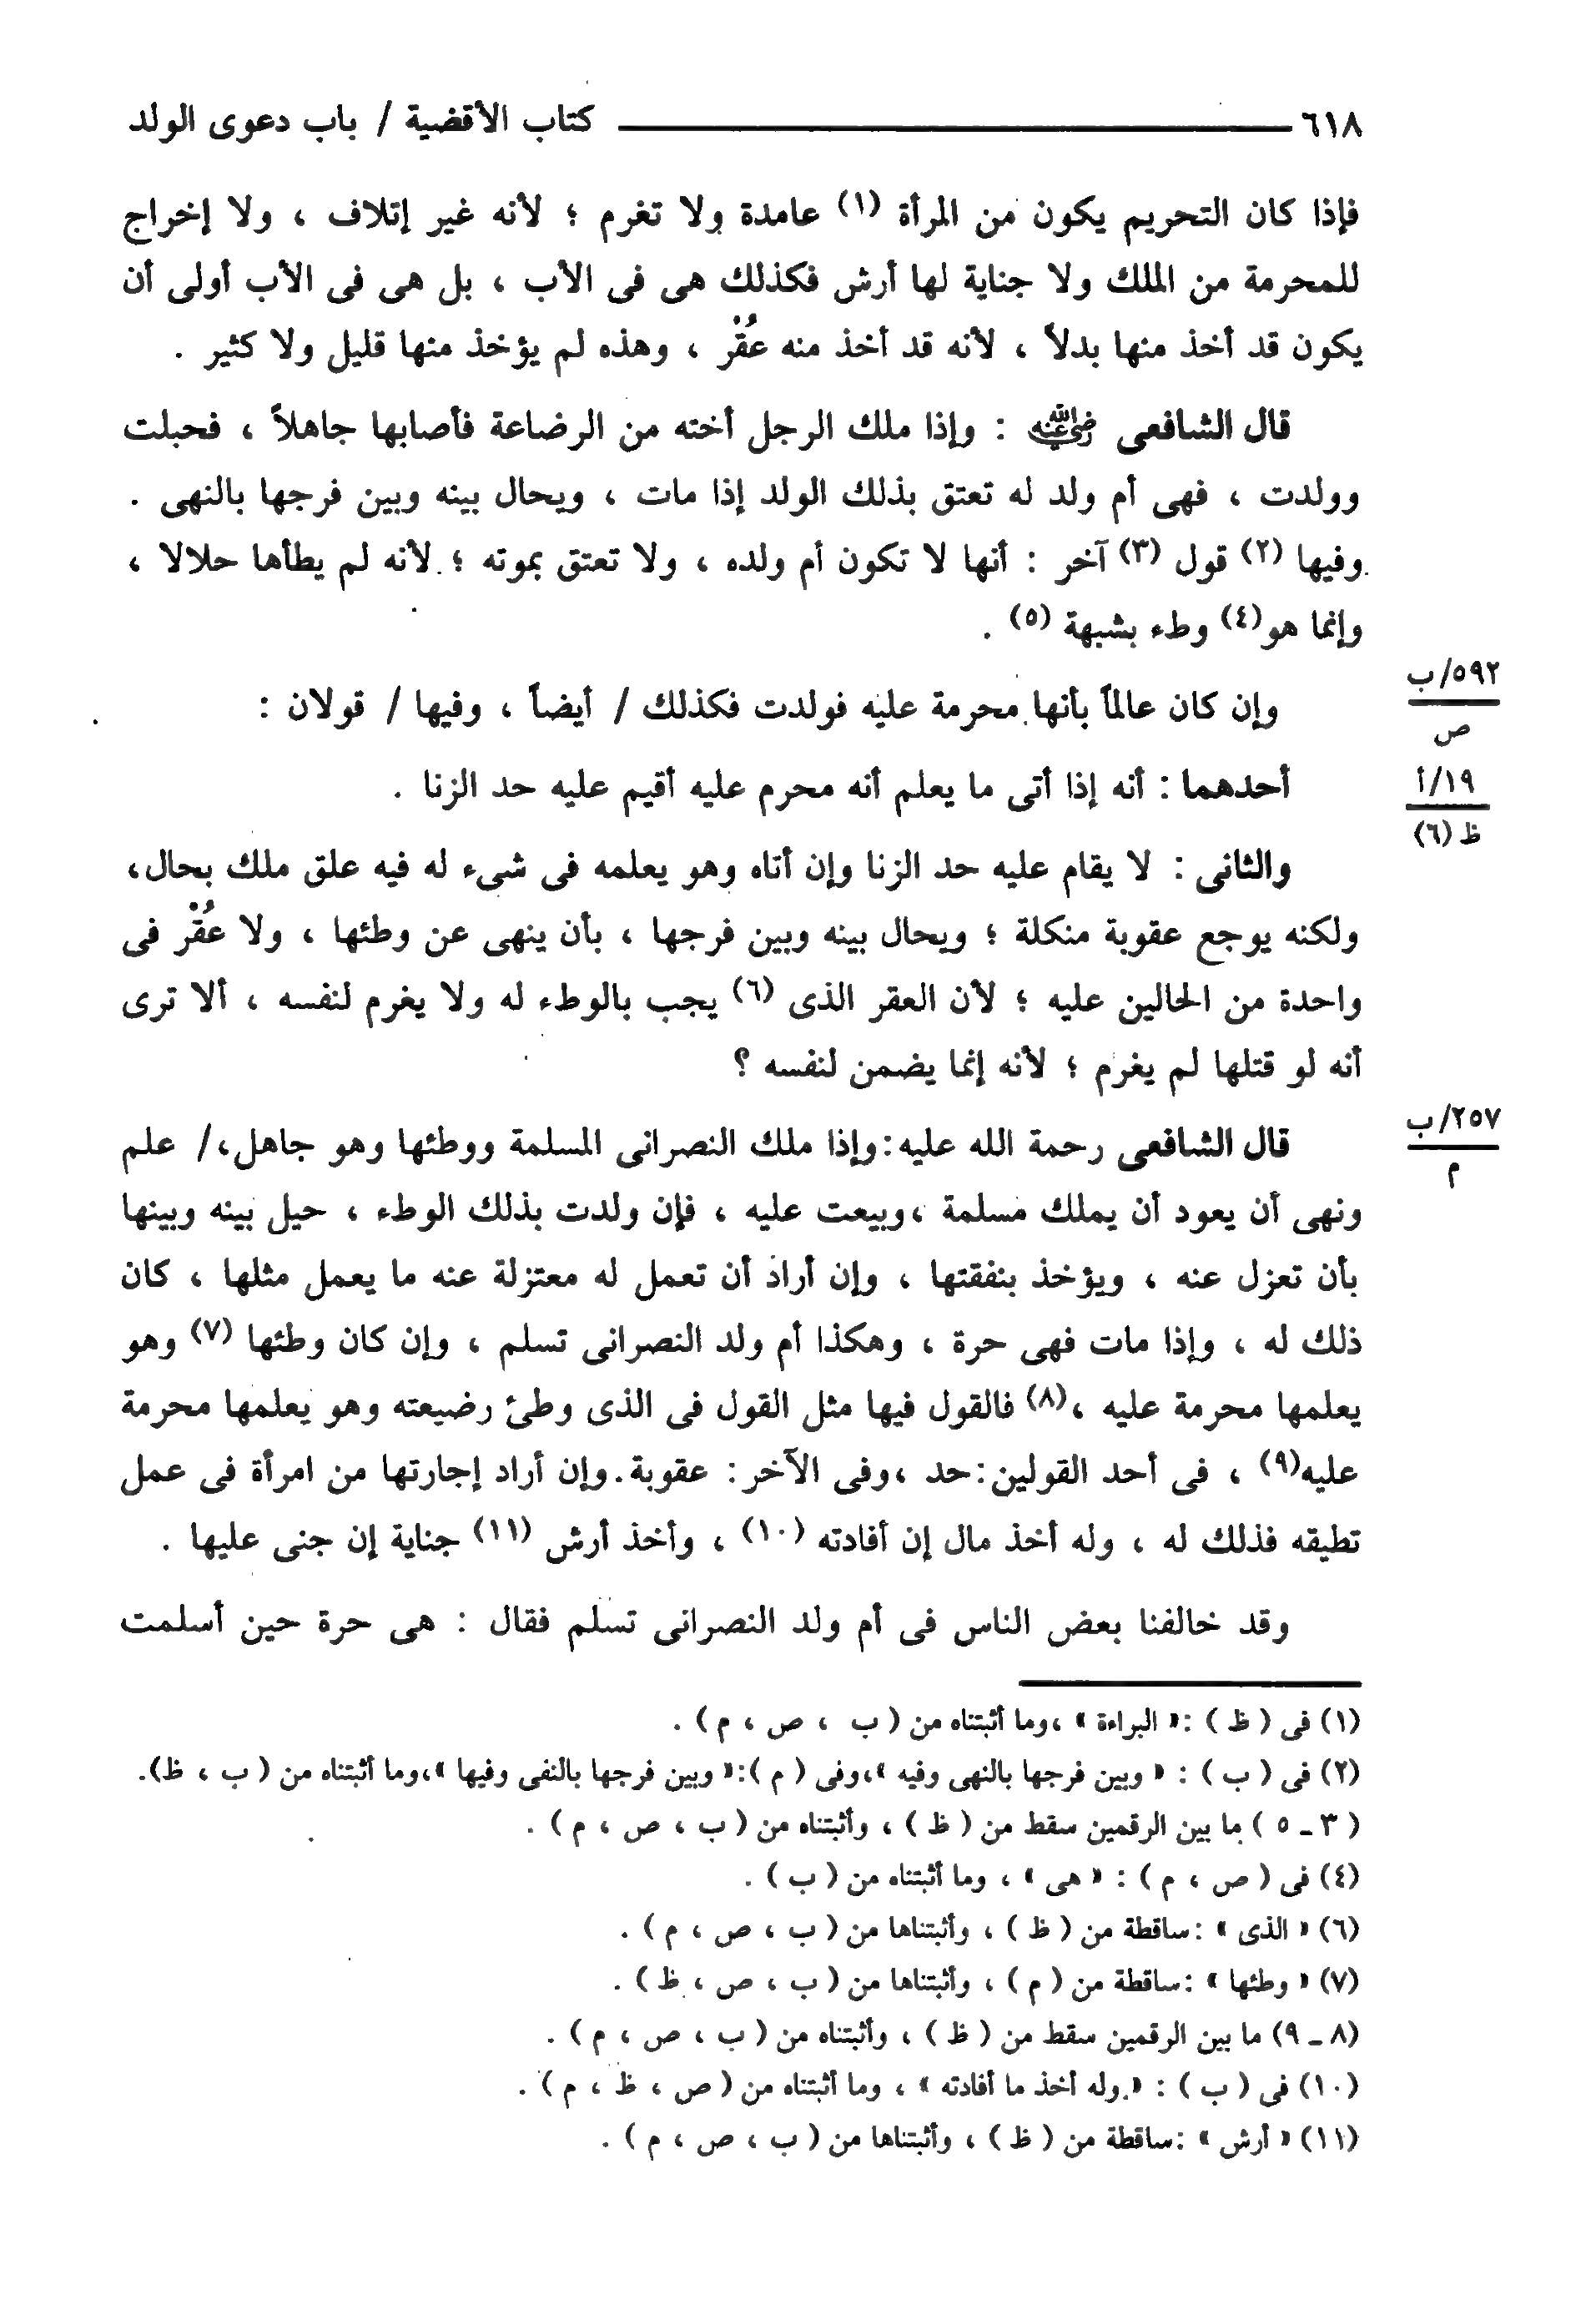 ٦١٨ كتاب الأقضية / باب دعوى الولد
فإذا كان التحريم يكون من المرأة (١) عامدة ولا تغرم ؛ لأنه غير إتلاف ، ولا إخراج
للمحرمة من الملك ولا جناية لها أرش فكذلك هى فى الأب ، بل هى فى الأب أولى أن
يكون قد أخذ منها بدلاً ، لأنه قد أخذ منه عُقْر ، وهذه لم يؤخذ منها قليل ولا كثير .
قال الشافعى رضي الله عنه : وإذا ملك الرجل أخته من الرضاعة فأصابها جاهلاً ، فحبلت
وولدت ، فهى أم ولد له تعتق بذلك الولد إذا مات ، ويحال بينه وبين فرجها بالنهى .
وفيها (٢) قول (٣) آخر : أنها لا تكون أم ولده ، ولا تعتق بموته ؛ لأنه لم يطأها حلالا ،
وإنما هو(٤) وطء بشبهة (٥) .
٥٩٢/ب
ص
وإن كان عالماً بأنها محرمة عليه فولدت فكذلك / أيضاً ، وفيها / قولان :
١٩/أ
ظ (٦)
أحدهما : أنه إذا أتى ما يعلم أنه محرم عليه أقيم عليه حد الزنا .
والثانى : لا يقام عليه حد الزنا وإن أتاه وهو يعلمه فى شىء له فيه علق ملك بحال،
ولكنه يوجع عقوبة منكلة ؛ ويحال بينه وبين فرجها ، بأن ينهى عن وطئها ، ولا عُقْر فى
واحدة من الحالين عليه ؛ لأن العقر الذى (٦) يجب بالوطء له ولا يغرم لنفسه ، ألا ترى
أنه لو قتلها لم يغرم ؛ لأنه إنما يضمن لنفسه ؟
٢٥٧/ب
م
قال الشافعى رحمة الله عليه:وإذا ملك النصرانى المسلمة ووطئها وهو جاهل،/ علم
ونهى أن يعود أن يملك مسلمة ،وبيعت عليه ، فإن ولدت بذلك الوطء ، حيل بينه وبينها
بأن تعزل عنه ، ويؤخذ بنفقتها ، وإن أراد أن تعمل له معتزلة عنه ما يعمل مثلها ، كان
ذلك له ، وإذا مات فهى حرة ، وهكذا أم ولد النصرانى تسلم ، وإن كان وطئها (٧) وهو
يعلمها محرمة عليه ،(٨) فالقول فيها مثل القول فى الذى وطئ رضيعته وهو يعلمها محرمة
عليه(٩) ، فى أحد القولين:حد ،وفى الآخر: عقوبة.وإن أراد إجارتها من امرأة فى عمل
تطيقه فذلك له ، وله أخذ مال إن أفادته (١٠) ، وأخذ أرش (١١) جناية إن جنى عليها .
وقد خالفنا بعض الناس فى أم ولد النصرانى تسلم فقال : هى حرة حين أسلمت
(١) فى ( ظ ) :« البراءة » ،وما أثبتناه من ( ب ، ص ، م ) .
(٢) فى ( ب ) : « وبين فرجها بالنهى وفيه »،وفى ( م ):« وبين فرجها بالنفى وفيها »،وما أثبتناه من ( ب ، ظ).
( ٣ ـ ٥ ) ما بين الرقمين سقط من ( ظ ) ، وأثبتناه من ( ب ، ص ، م ) .
(٤) فى ( ص ، م ) : « هى » ، وما أثبتناه من ( ب ) .
(٦) « الذى » :ساقطة من ( ظ ) ، وأثبتناها من ( ب ، ص ، م ) .
(٧) « وطئها » :ساقطة من ( م ) ، وأثبتناها من ( ب ، ص ، ظ ) .
(٨ ـ ٩) ما بين الرقمين سقط من ( ظ ) ، وأثبتناه من ( ب ، ص ، م ) .
(١٠) فى ( ب ) : « وله أخذ ما أفادته » ، وما أثبتناه من ( ص ، ظ ، م ) .
(١١) « أرش » :ساقطة من ( ظ ) ، وأثبتناها من ( ب ، ص ، م ) .